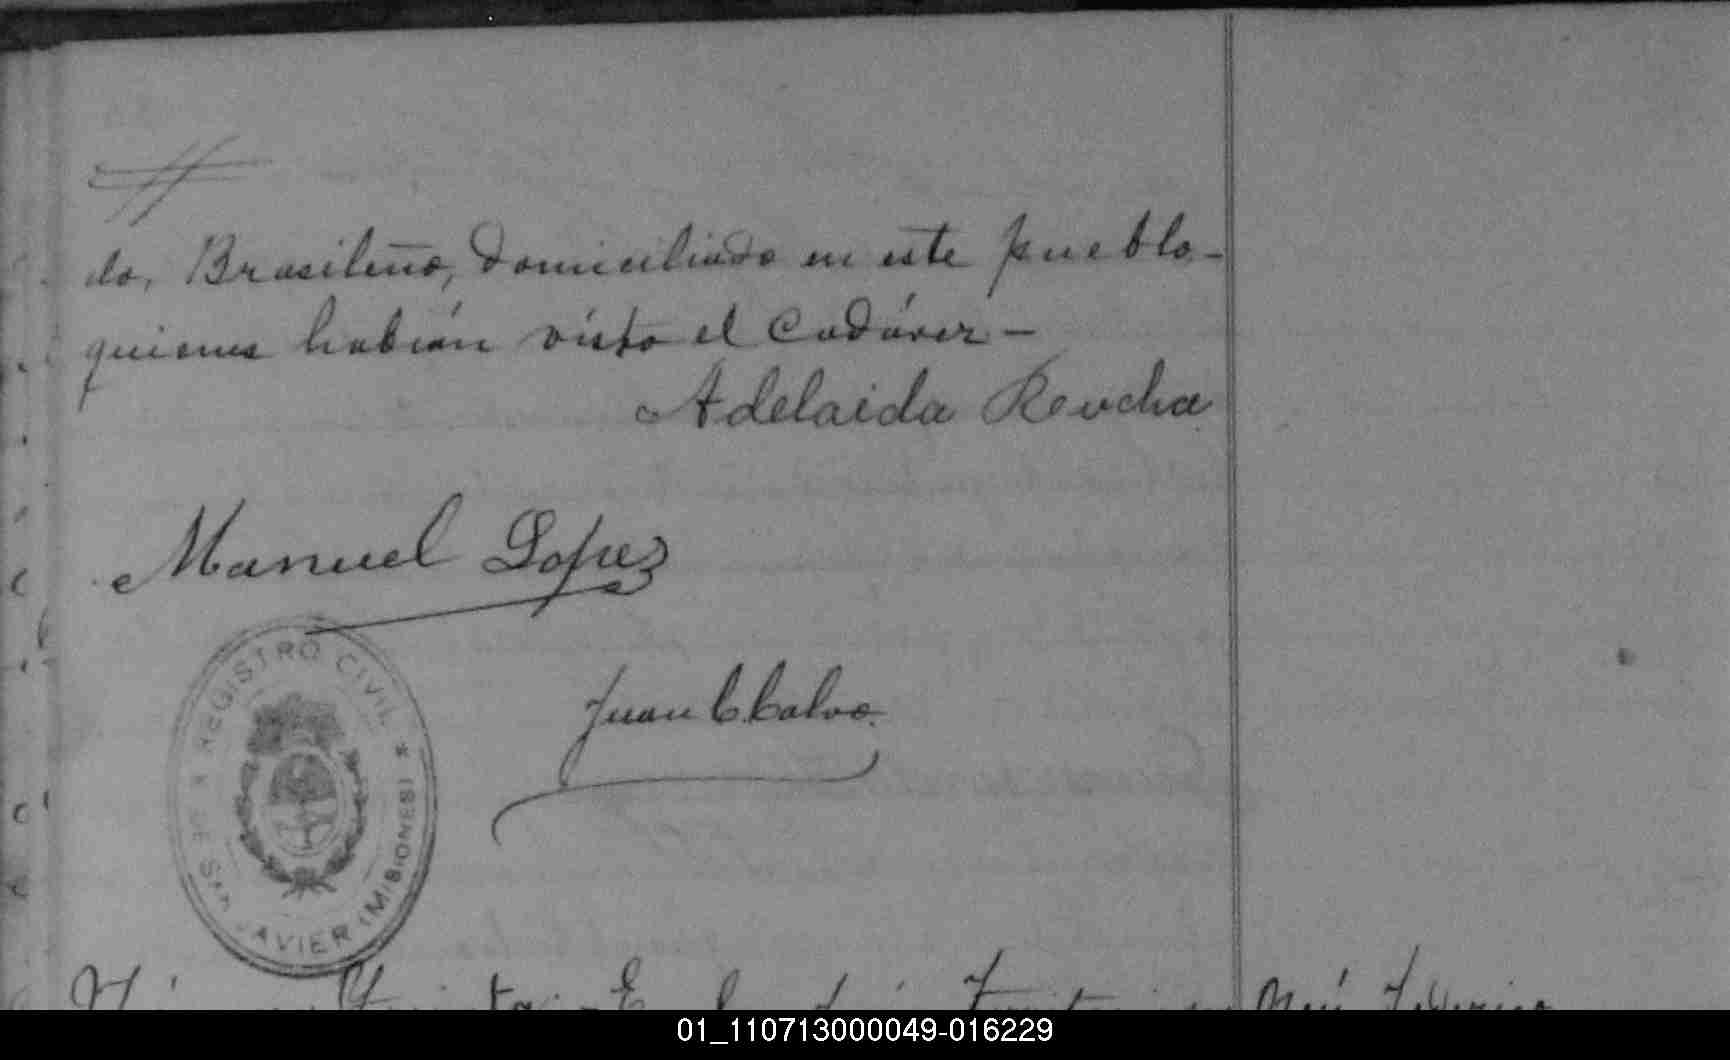 do, Brasileño, domiciliado en este pueblo-
quienes habían visto el Cadáver-
Adelaida Rocha
Manuel Lopez
REGISTRO CIVIL * DE SAN JAVIER (MISIONES) *
Juan C. Calvo.
01_110713000049-016229